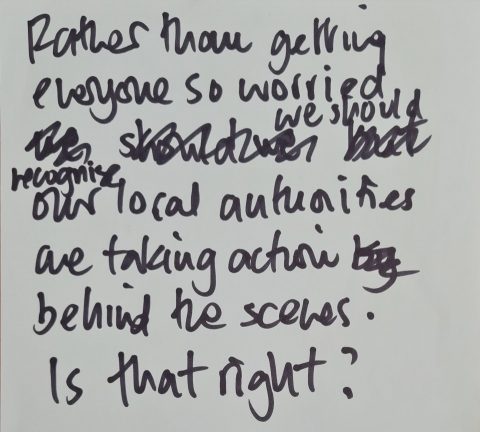 Rather than getting
everyone so worried
we should
recognise
our local authorities
are taking action
behind the scenes.
Is that right?